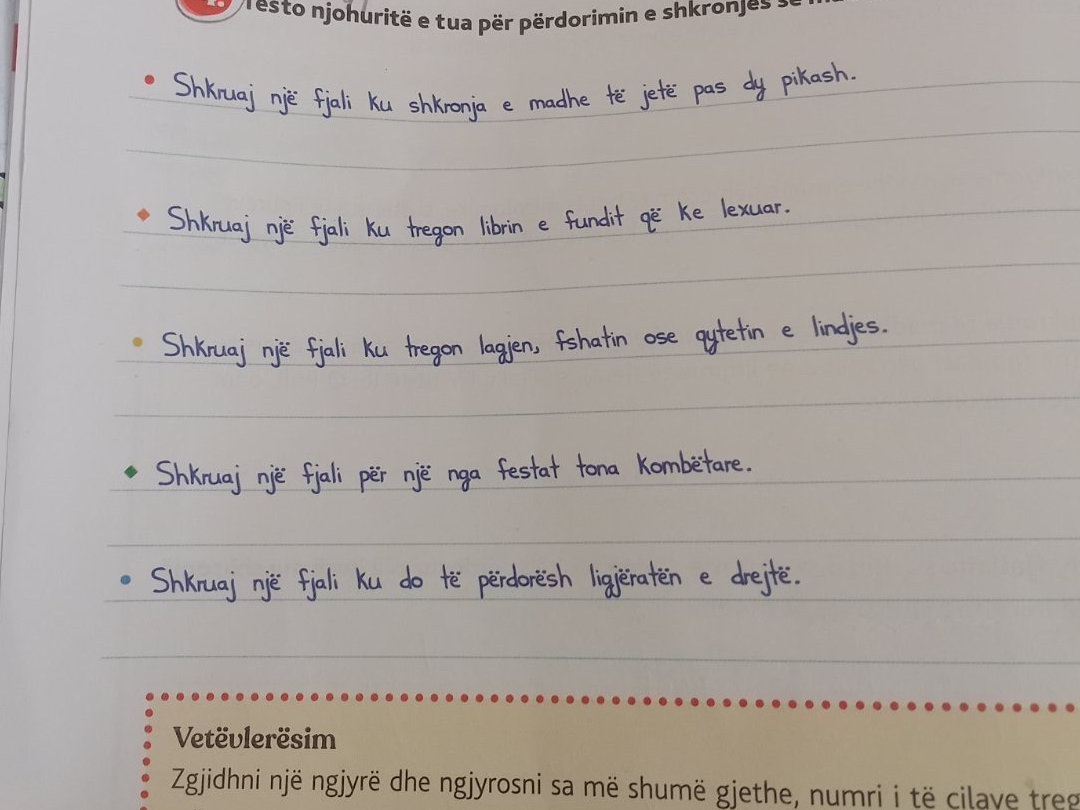 Testo njohuritë e tua për përdorimin e shkronjës së
Shkruaj një fjali ku shkronja e madhe të jetë pas dy pikash.
Shkruaj një fjali ku tregon librin e fundit që ke lexuar.
Shkruaj një fjali ku tregon lagjen, fshatin ose qytetin e lindjes.
Shkruaj një fjali për një nga festat tona kombëtare.
Shkruaj një fjali ku do të përdorësh ligjëratën e drejtë.
Vetëvlerësim
Zgjidhni një ngjyrë dhe ngjyrosni sa më shumë gjethe, numri i të cilave treg